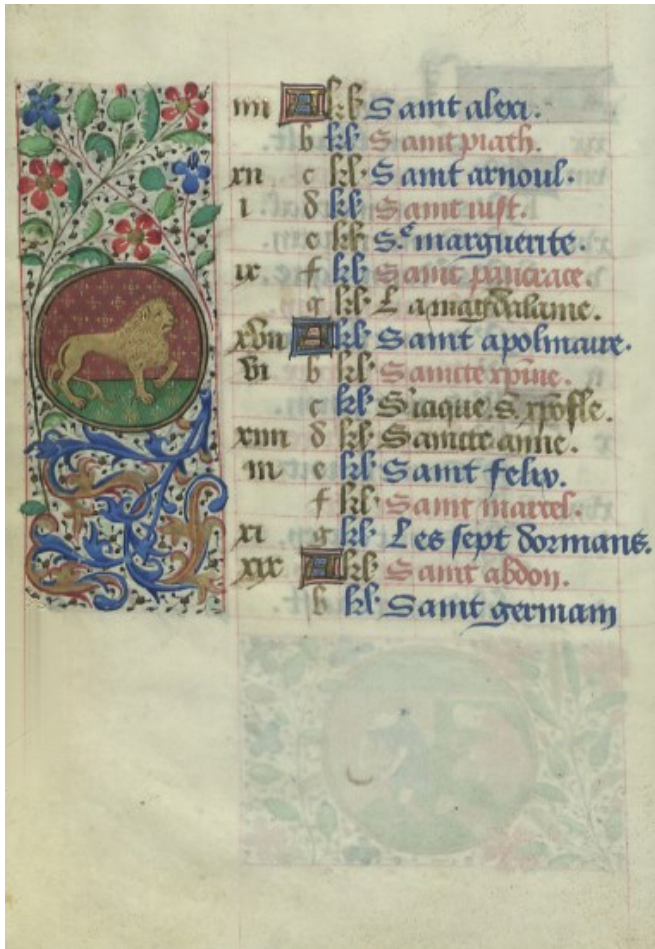 iiii A kl Saint alexi.
b kl Saint piath.
xii c kl Saint arnoul.
i d kl Saint iust.
e kl Sᵉ marguerite.
ix f kl Saint pancrace.
g kl La magdalaine.
xvii A kl Saint apolinaire.
vi b kl Saincte xpine.
c kl S iaque. S xpofle.
xiiii d kl Saincte anne.
iii e kl Saint felix.
f kl Saint marcel.
xi g kl Les sept dormans.
xix A kl Saint abdon.
b kl Saint germain